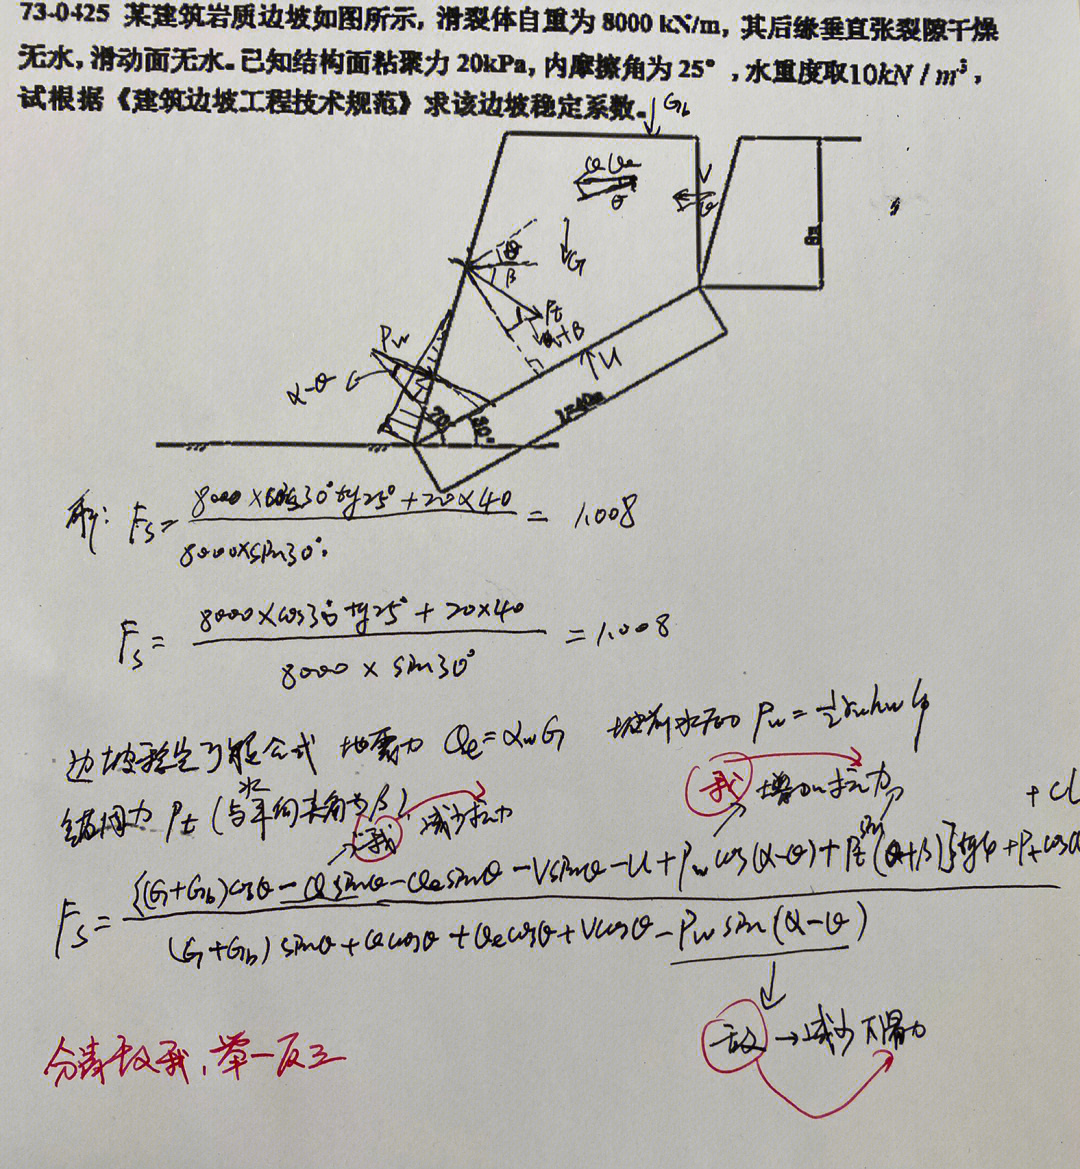 73-0425 某建筑岩质边坡如图所示, 滑裂体自重为 8000 kN/m, 其后缘垂直张裂隙干燥
无水, 滑动面无水。已知结构面粘聚力 20kPa, 内摩擦角为 25°, 水重度取10kN / m³,
试根据《建筑边坡工程技术规范》求该边坡稳定系数。
Gb
Q Qe
θ
V
8m
θ
β
G
Pt
θ+β
Pw
α-θ
U
70°
30°
L=40m
解: Fs= (8000×cos30°tg25°+20×40)/(8000×sin30°) = 1.008
Fs= (8000×cos30°tg25°+20×40)/(8000×sin30°) = 1.008
边坡稳定 公式 地震力 Qe=αwG 坡前水下的 Pw=½γwhw
锚固力 Pt (与水平向夹角为β)
我 减少抗力
我 增加抗力
Fs= {[(G+Gb)cosθ-Qsinθ-Qesinθ-Vsinθ-U+Pwcos(α-θ)+Ptsin(θ+β)]tgφ+Ptcos +cL
(G+Gb)sinθ+Qcosθ+Qecosθ+Vcosθ-Pwsin(α-θ)
敌 → 减少下滑力
分清敌我, 举一反三